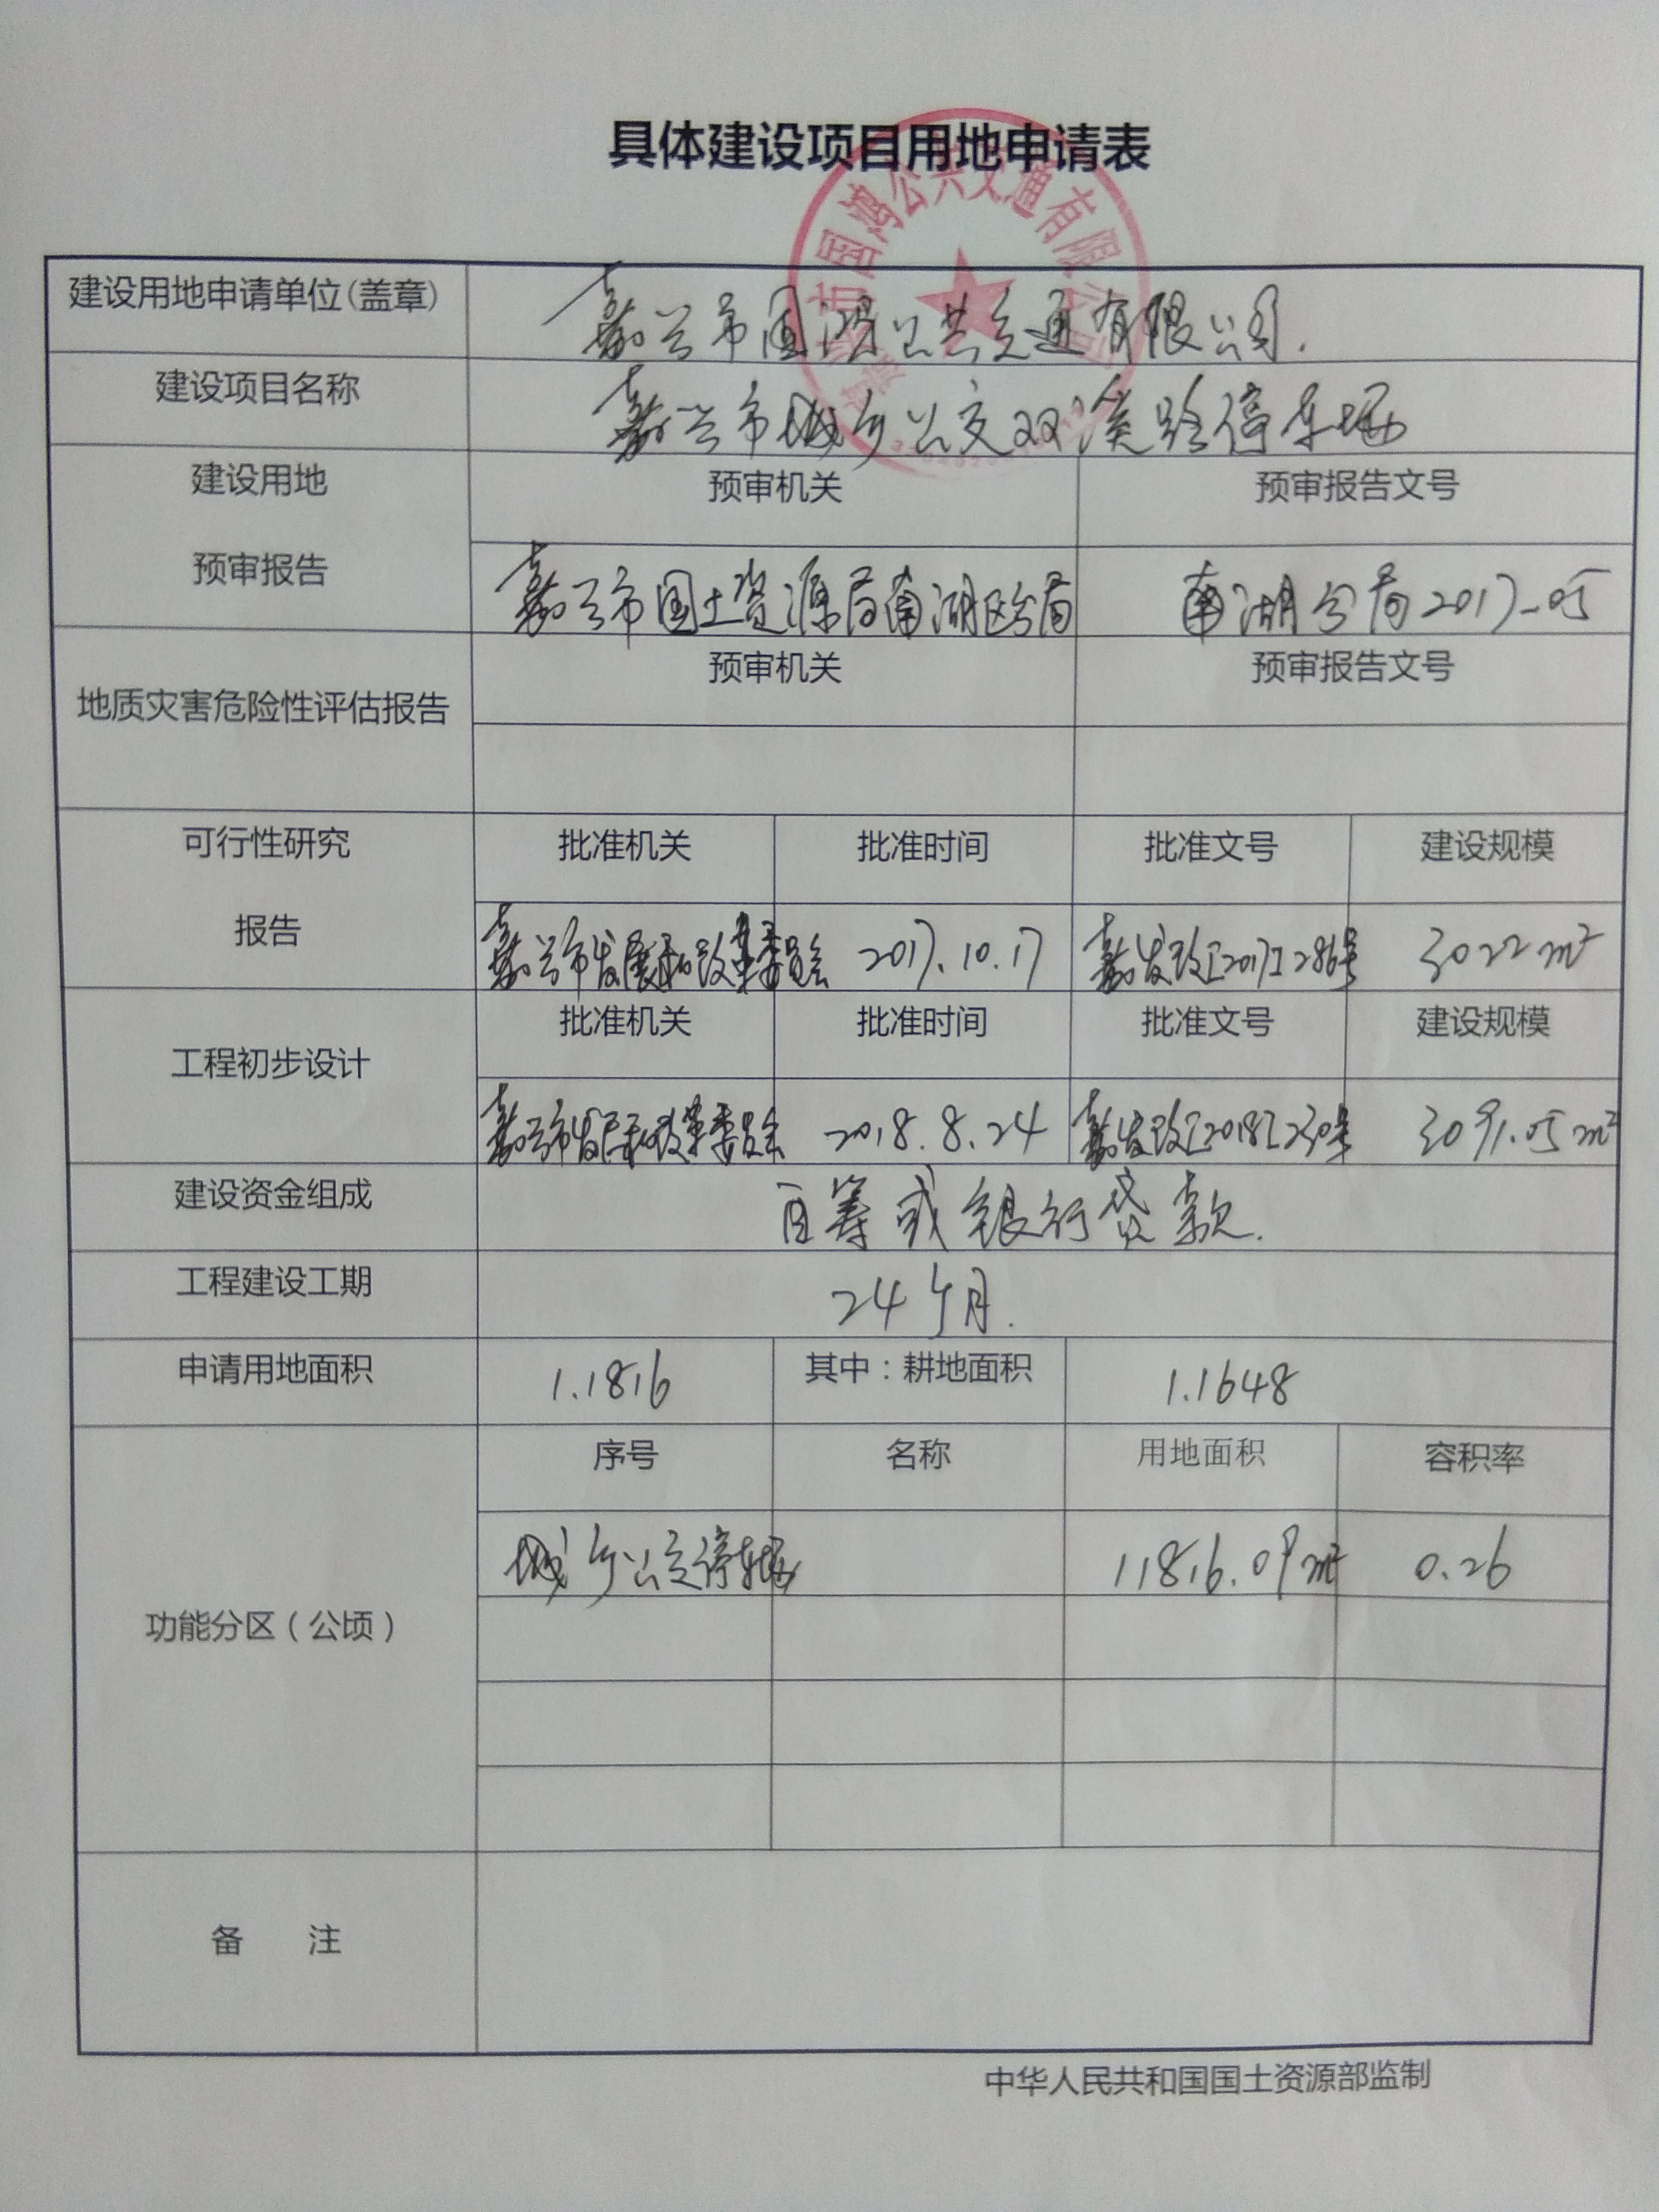 具体建设项目用地申请表
市国鸿公共交通有限公
建设用地申请单位(盖章) 嘉兴市国鸿公共交通有限公司.
建设项目名称 嘉兴市城乡公交双溪路停车场
建设用地 预审机关 预审报告文号
预审报告 嘉兴市国土资源局南湖区分局 南湖分局2017-05
地质灾害危险性评估报告 预审机关 预审报告文号
可行性研究 批准机关 批准时间 批准文号 建设规模
报告 嘉兴市发展和改革委员会 2017.10.17 嘉发改[2017]286号 3022m²
工程初步设计 批准机关 批准时间 批准文号 建设规模
嘉兴市发展和改革委员会 2018.8.24 嘉发改[2018]230号 3091.05m²
建设资金组成 自筹或银行贷款.
工程建设工期 24个月.
申请用地面积 1.1816 其中：耕地面积 1.1648
序号 名称 用地面积 容积率
城乡公交停车场 11816.09m² 0.26
功能分区（公顷）
备 注
中华人民共和国国土资源部监制